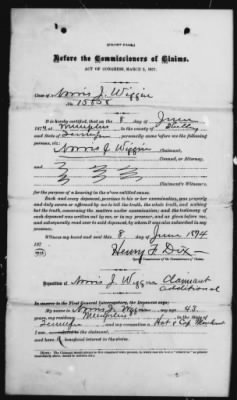 (FRONT PAGE.)
Before the Commissioners of Claims.
ACT OF CONGRESS, MARCH 3, 1871.
Case of Norris J. Wiggin
No. 15858
It is hereby certified, that on the 8 day of June
1874, at Memphis, in the county of Shelby
and State of Tennessee, personally came before me the following
persons, viz:
Norris J. Wiggin Claimant,
Counsel, or Attorney,
and
Claimant's Witnesses,
for the purpose of a hearing in the above-entitled cause.
Each and every deponent, previous to his or her examination, was properly and
duly sworn or affirmed by me to tell the truth, the whole truth, and nothing
but the truth, concerning the matters under examination; and the testimony of
each deponent was written out by me, or in my presence, and as given before me,
and subsequently read over to said deponent, by whom it was also signed in my presence.
Witness my hand and seal this 8 day of June 1874
Henry F Dix
Special Commissioner of the Commissioners of Claims.
Deposition of Norris J. Wiggin Claimant
additional
In answer to the First General Interrogatory, the Deponent says:
My name is Norris J. Wiggin my age 43
years, my residence Memphis, in the State of
Tennessee, and my occupation a Hat & Cap Merchant
the claimant,
and have a beneficial interest in the claim.